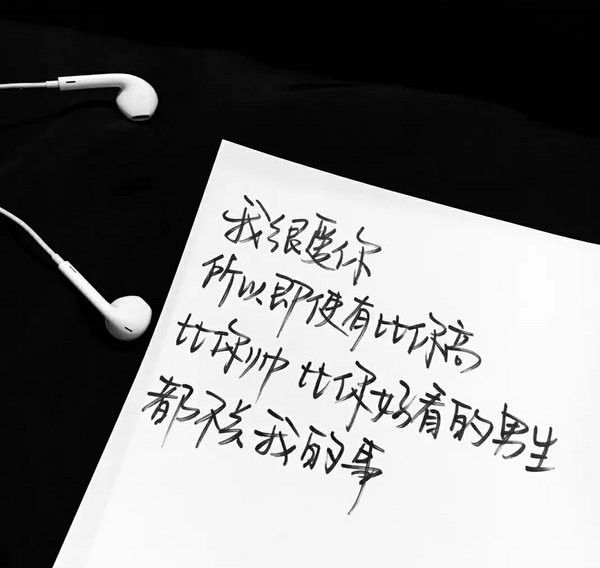 我很爱你
所以即使有比你高
比你帅 比你好看的男生
都不关我的事